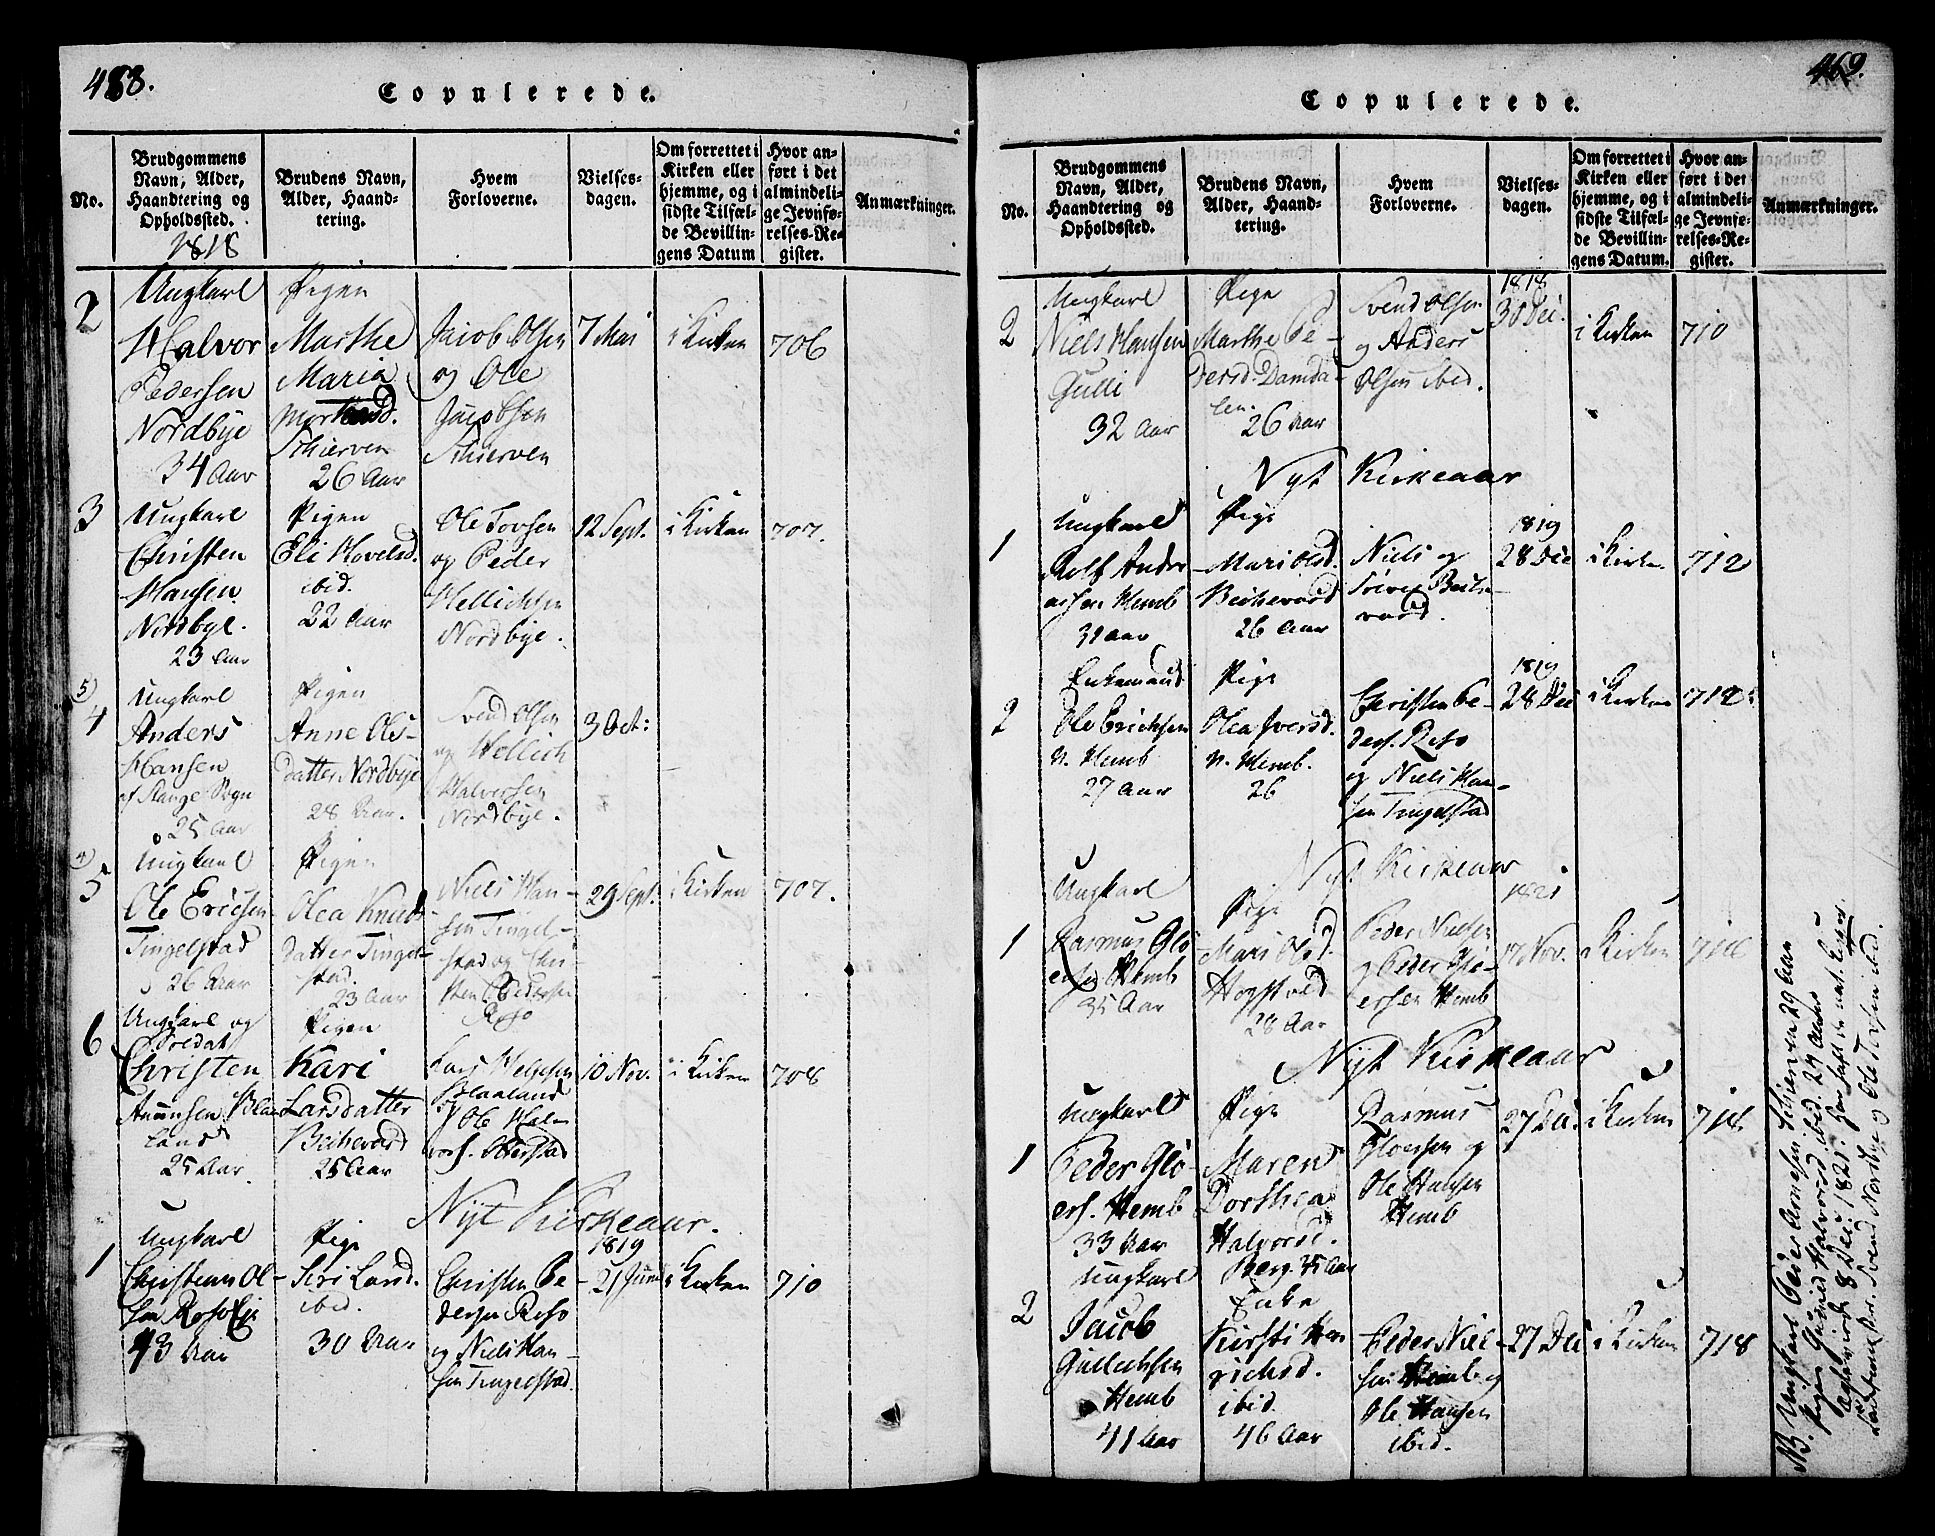 488.
Copulerede.
No.
Brudgommens
Navn, Alder,
Haandtering og
Opholdssted.
1818
Brudens Navn,
Alder, Haand-
tering.
Hvem
Forloverne.
Vielses-
dagen.
Om forrettet i
Kirken eller
hjemme, og i
sidste Tilfæl-
de Bevillin-
gens Datum
Hvor an-
ført i det
almindeli-
ge Jevnfø-
relses-Re-
gister.
Anmærkninger.
2
Ungkarl
Halvor
Pedersen
Nordbye
34 Aar
Pigen
Marthe
Maria
Schierven
26 Aar
Jacob Olsen
og Ole
Jacobsen
Schierven
7 Mai
i Kirken
706
3
Ungkarl
Christen
Hansen
Nordbye.
23 Aar
Pigen
Eli Hovelsd.
ibid.
22 Aar
Ole Tovsen
og Peder
Hellichsen
Nordbye.
12 Sept.
i Kirken
707.
5)
4
Ungkarl
Anders
Hansen
af Stange Sogn
25 Aar
Pigen
Anne Ols-
datter Nordbye
28 Aar.
Svend Olsen
og Hellich
Halversen
Nordbye.
3 Oct:
4)
5
Ungkarl
Ole Ericsen
Tingelstad
26 Aar
Pigen
Olea Knuds-
datter Tingel-
stad.
23 Aar
Niels Han-
sen Tingel-
stad og Chri-
sten Pedersen
Roso
29 Sept.
i Kirken
707.
6
Ungkarl og
Soldat
Christen
Amundsen Blaa-
land
25 Aar
Pigen
Kari
Larsdatter
Beihevord
25 Aar
Lars Helgesen
Blaaland
og Ole Hal-
vors. Otterstad
10 Nov.
i Kirken
708
Nyt Kirkeaar.
1
Ungkarl
Christian Ol-
sen Roso Eje
43 Aar
Pige
Siri Land.
ibid.
30 Aar
Christen Pe-
dersen Roso
og Niels Han-
sen Tingelstad.
1819
21 Juni
i Kirken
710
469.
Copulerede.
No.
Brudgommens
Navn, Alder,
Haandtering og
Opholdssted.
Brudens Navn,
Alder, Haand-
tering.
Hvem
Forloverne.
Vielses-
dagen.
Om forrettet i
Kirken eller
hjemme, og i
sidste Tilfæl-
de Bevillin-
gens Datum.
Hvor an-
ført i det
almindeli-
ge Jevnfø-
relses-Re-
gister.
Anmærkninger.
2
Ungkarl
Niels Hansen
Gulli
32 Aar
Pige
Marthe Pe-
dersd. Damda-
len.
26 Aar
Svend Olsen
og Anders
Olsen ibid.
1818
30 Dec.
i Kirken
710
Nyt Kirkeaar
1
Ungkarl
Rolf Andre
asen Hemb
31 Aar
Pige
Mari Olsd.
Beihevord
26 Aar
Niels og
Iver Beihe-
vord.
1819
28 Dec
i Kirken
712
2
Enkemand
Ole Erichsen
n. Hemb
27 Aar
Pige
Olea Iversd.
n. Hemb.
26
Christen Pe-
ders. Roso
og Niels Han-
sen Tingelstad
1819
28 Dec
i Kirken
712
Nyt Kirkeaar
1
Ungkarl
Rasmus Glo
ersen Hemb
35 Aar
Pige
Mari Olsd.
Hogstved
28 Aar
Peder Nielsen
og Peder Glo-
ersen Hemb
1821
17 Nov.
i Kirken
718
Nyt Kirkeaar
1
Ungkarl
Peder Glo-
ers. Hemb
33 Aar
Pige
Maren
Dorthea
Halvorsd.
Berg. 35 Aar
Rasmus
Gloersen og
Ole Hansen
Hemb
27 Dec
i Kirken
718
2
Ungkarl
Jacob
Gullichsen
Hemb
41 Aar
Enke
Kirsti Hen
richsd.
ibid.
46 Aar
Peder Niel-
sen Hemb og
Ole Hansen
ibid.
27 Dec
i Kirken
718
NB. Ungkarl Peder Arnesen Schierven 29 Aar
Pigen Gunild Halvorsd. ibid. 24 Aar
Ægteviede 8 Dec: 1821.
Svend Nordbye og Ole Torsen ibid.